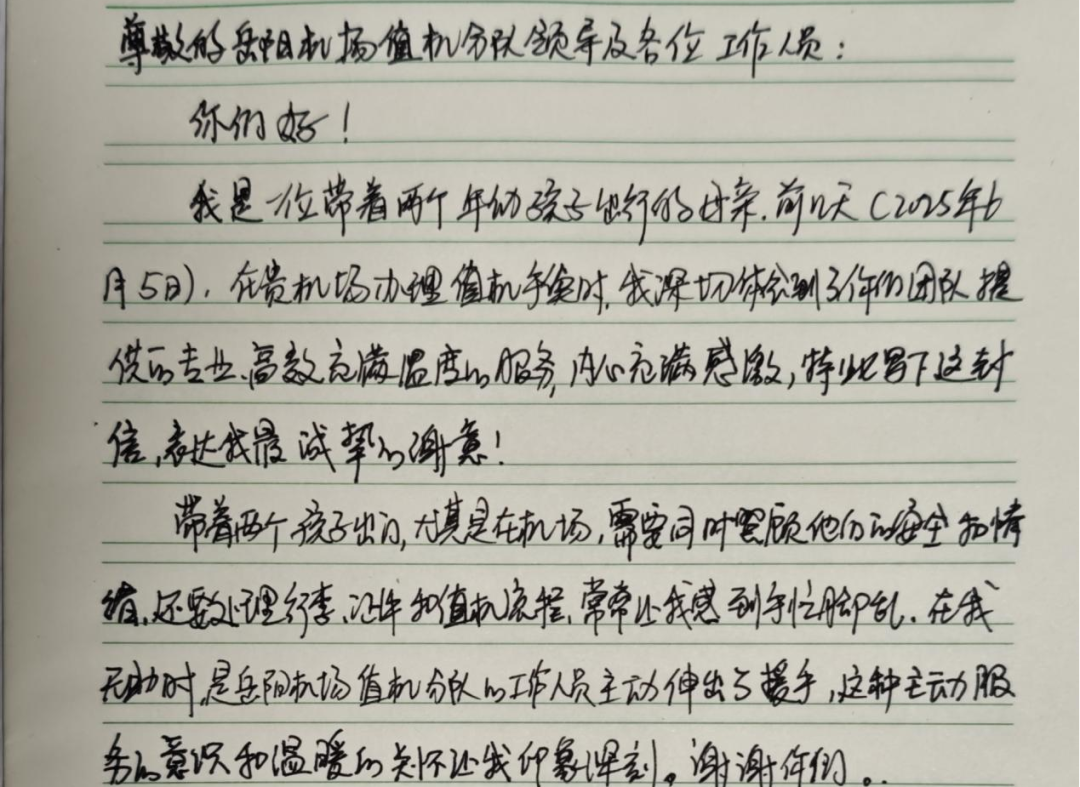 尊敬的岳阳机场值机分队领导及各位工作人员：
你们好！
我是一位带着两个年幼孩子出行的母亲，前几天（2025年6
月5日），在贵机场办理值机手续时，我深切体会到了你们团队提
供的专业、高效充满温度的服务，内心充满感激，特此留下这封
信，表达我最诚挚的谢意！
带着两个孩子出门，尤其是在机场，需要同时照顾他们的安全和情
绪，还要处理行李、证件和值机流程，常常让我感到手忙脚乱。在我
无助时，是岳阳机场值机分队的工作人员主动伸出了援手，这种主动服
务的意识和温暖的关怀让我印象深刻。谢谢你们。